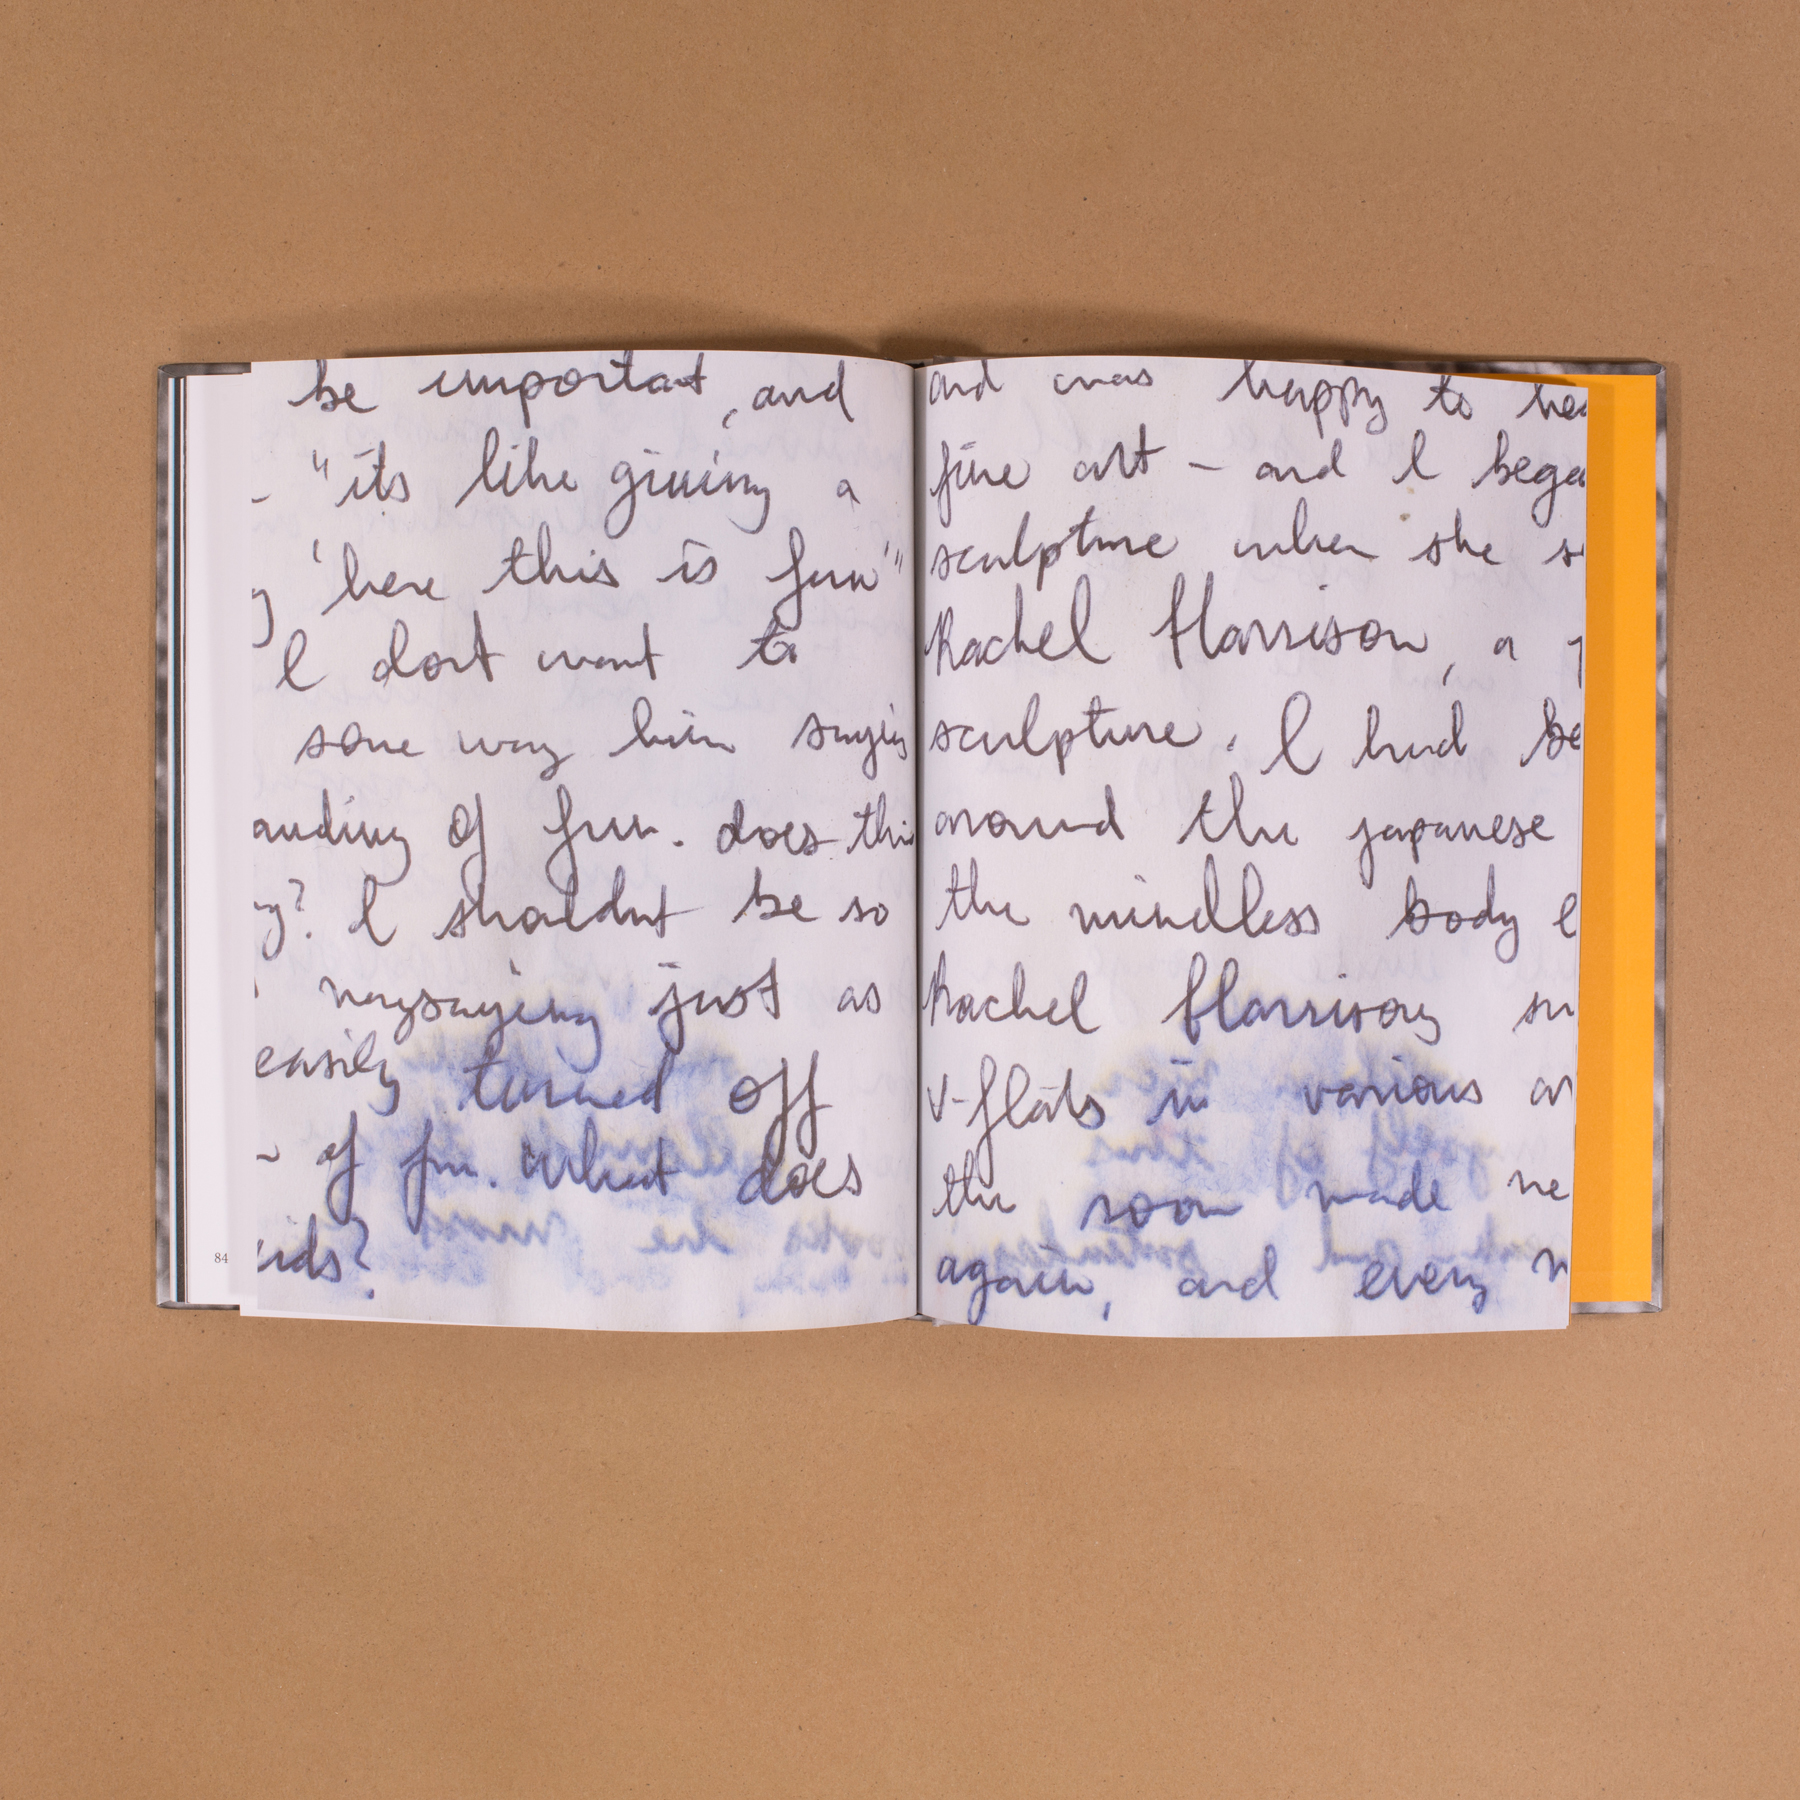 be importat, and
- "its like giving a
'here this is fun'"
I dont want to
some way him saying
anding of fun. does this
? I shouldnt be so
naysaying just as
easily turned off
of fun. What does
kids?
84
and was happy to hea
fine art - and I bega
sculpture when she s
Rachel Harrison, a
sculpture. I had be
around the japanese
the mindless body e
Rachel Harrisony
v-flats in various
the room made ne
again, and every